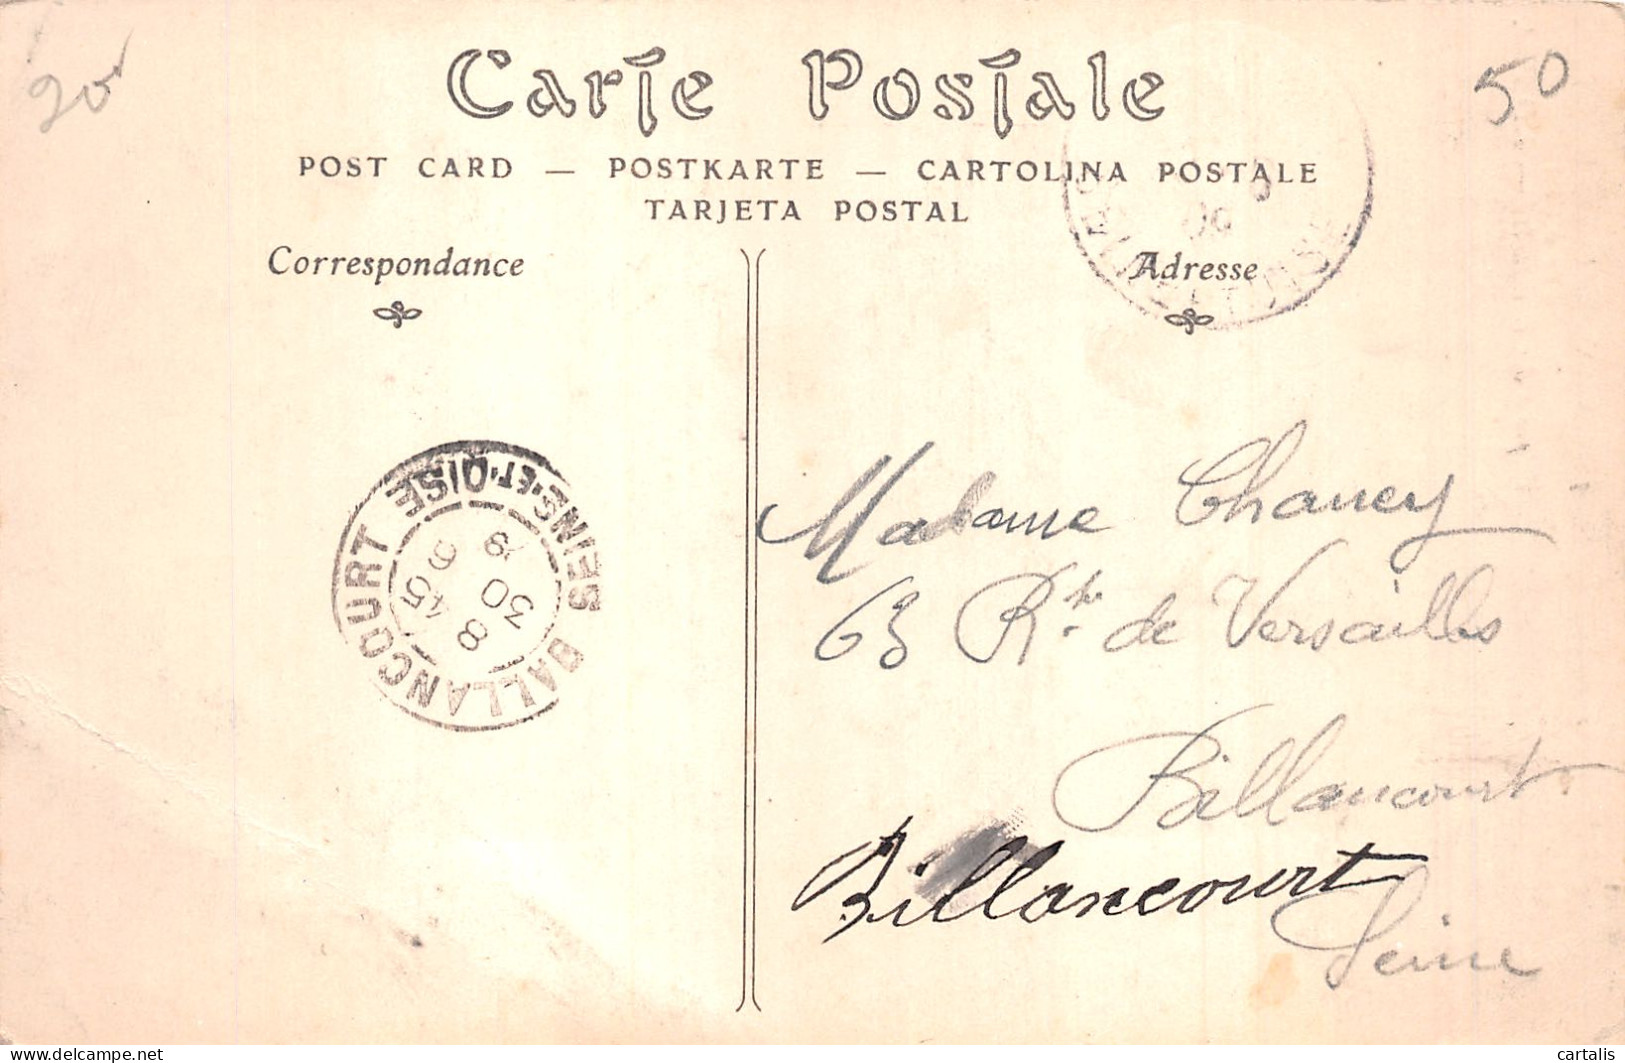 20
50
Carte Postale
POST CARD — POSTKARTE — CARTOLINA POSTALE
TARJETA POSTAL
Correspondance
Adresse
BALLANCOURT SEINE-ET-OISE
6 45
30 8
Madame Chancy
63 Rte de Versailles
Billancourt
Billancourt
Seine
www.delcampe.net
cartalis